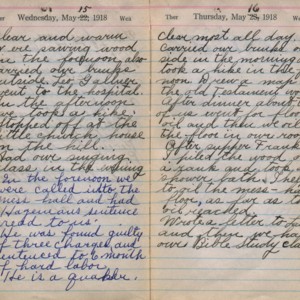 15
Wednesday, May 22, 1918
Wed
Clear and warm
we sawing wood
in the forenoon also
carried our bunks
outside
went to the hospital.
In the afternoon
we took a hike
stopped off at the
little church house
on the hill.
Had our singing
class in the evening
In the forenoon we
were called into the
mess-hall and had
sentence
read to us.
He was found guilty
of three charges and
sentenced to 6 month
of hard labor.
He is a quaker.
16
Ther
Thursday, May 23, 1918
Ther
Clear most all day
Carried our bunks out
side in the morning
took a hike in the
noon
the old testament
After dinner about
of us went for
and then we
the floor in our room
After supper Frank
I piled the wood
a rank and took
shower bath.
to oil the mess-h
floor, as far as
be reached.
Wrote a letter to
and then we ha
our Bible study cla